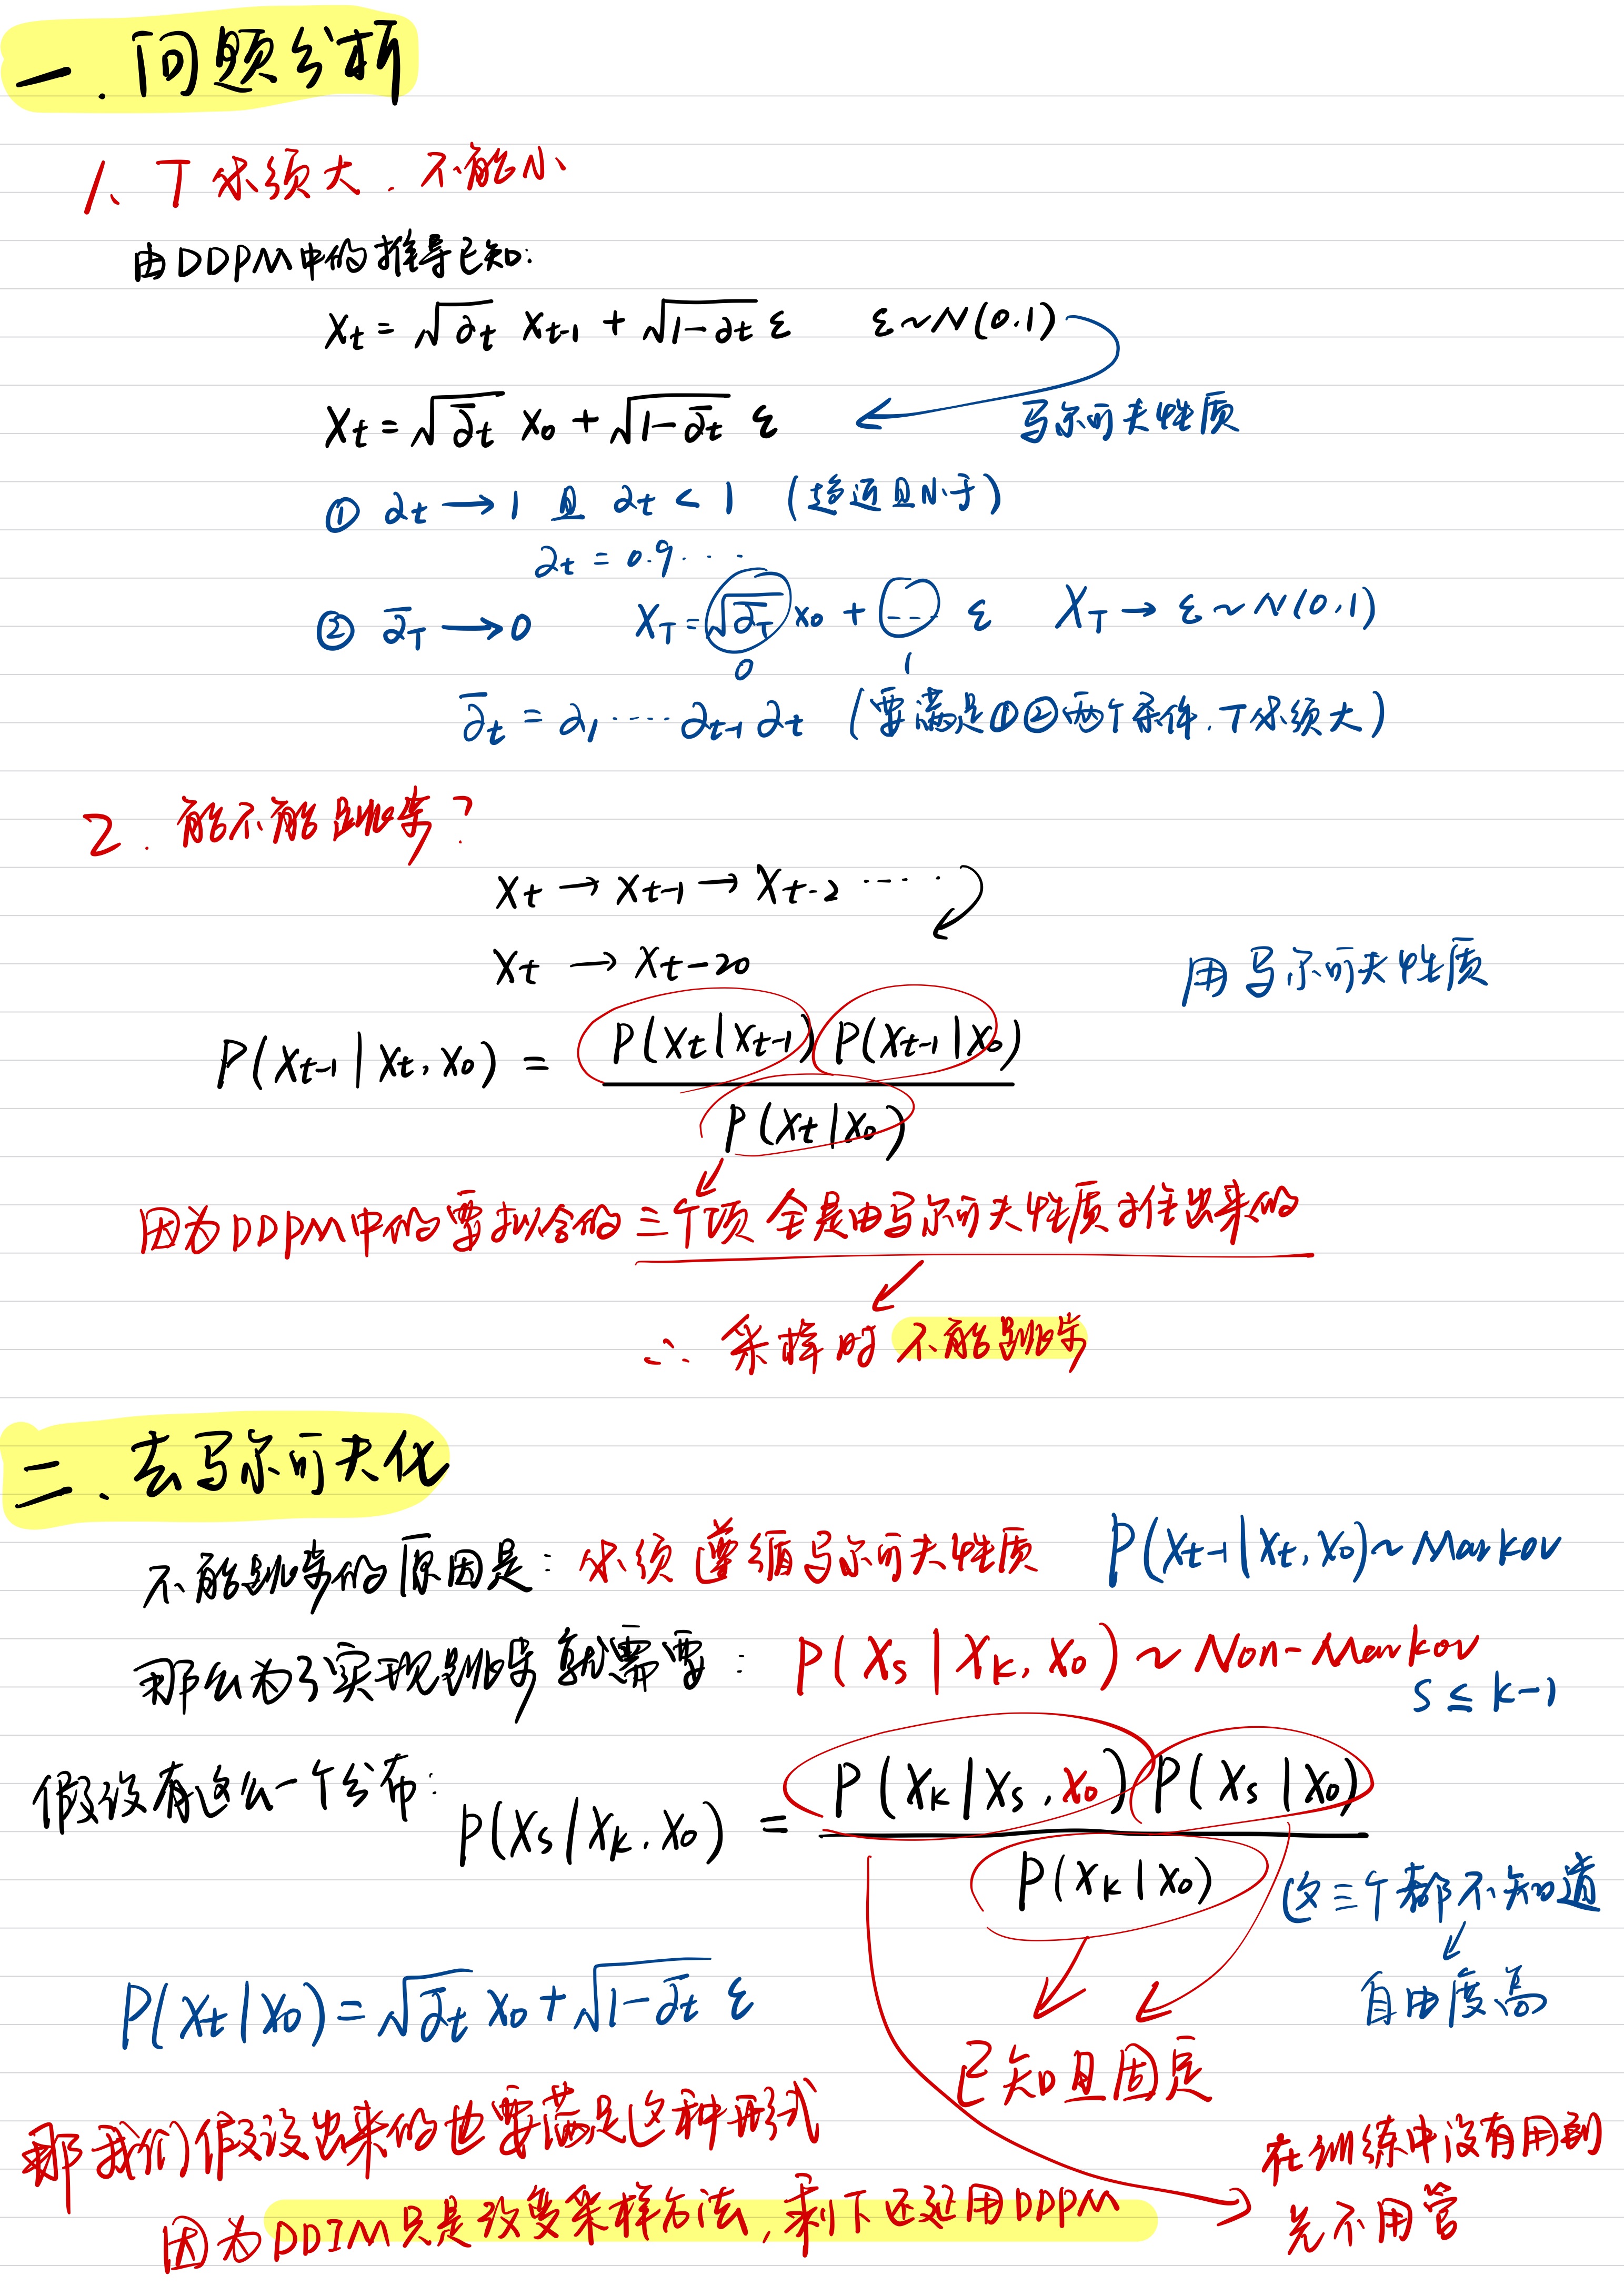 一. 问题分析
1、T 必须大. 不能小
由DDPM中的推导已知:
Xt = √αt Xt-1 + √1-αt ε ε~N(0.1)
Xt = √ᾱt X0 + √1-ᾱt ε
马尔可夫性质
① αt → 1 且 αt < 1 (趋近且小于)
αt = 0.9....
② ᾱT → 0 XT = √ᾱT x0 + --- ε XT → ε ~ N(0.1)
0 1
ᾱt = α1 ······ αt-1 αt (要满足①②两个条件.T必须大)
2. 能不能跳步?
Xt → Xt-1 → Xt-2 ·····
Xt → Xt-20
用马尔可夫性质
P(Xt-1 | Xt, X0) = P(Xt | Xt-1) P(Xt-1 | X0)
P(Xt | X0)
因为DDPM中的要拟合的三个项全是由马尔可夫性质推出来的
∴ 采样时不能跳步
二. 去马尔可夫化
不能跳步的原因是: 必须遵循马尔可夫性质 P(Xt-1 | Xt, X0) ~ Markov
那么为了实现跳步就需要: P(Xs | Xk, X0) ~ Non-Markov
s ≤ k-1
假设有这么一个分布:
P(Xs | Xk, X0) = P(Xk | Xs, X0) P(Xs | X0)
P(Xk | X0)
这三个都不知道
自由度高
P(Xt | X0) = √ᾱt X0 + √1-ᾱt ε
已知且固定
那我们假设出来的也要满足这种形式
在训练中没有用到
先不用管
因为DDIM只是改变采样方法,剩下还延用DDPM